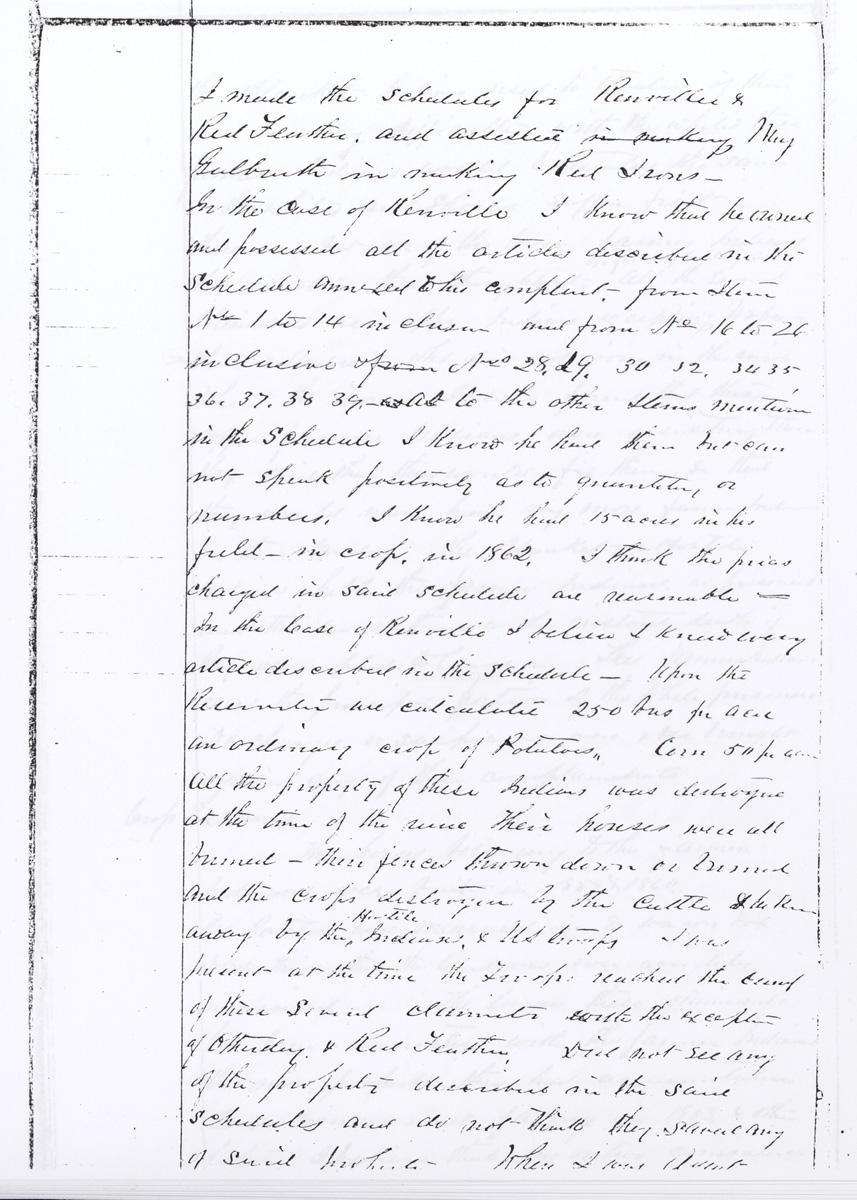 I made the schedules for Renville &
Red Feather. and assisted in making Maj
Galbraith in making Red Irons —
In the case of Renville I know that he owned
and possessed all the articles described in the
Schedule annexed to his complaint. from Item
No 1 to 14 inclusive and from No 16 to 26
inclusive & from Nos 28. 29. 30 32. 34 35
36. 37. 38 39. — as to the other Items mention
in the Schedule I know he had them but can
not speak positively as to quantity or
numbers. I know he had 15 acres in his
field — in crop. in 1862. I think the prices
charged in said schedule are reasonable —
In the Case of Renville I believe I knew every
article described in the Schedule — Upon the
Reservation we calculate 250 bus pr acre
an ordinary crop of Potatoes,, Corn 50 pr acre
All the property of these Indians was destroyed
at the time of the Their houses were all
burned — their fences thrown down or burned
and the crops destroyed by the Cattle & taken
away by the Hostile Indians, & US troops I was
present at the time the Troops reached the camp
of these several claimants with the exception
of Otherday & Red Feather. Did not see any
of the property described in the said
schedules and do not think they saved any
of said When I was Agent